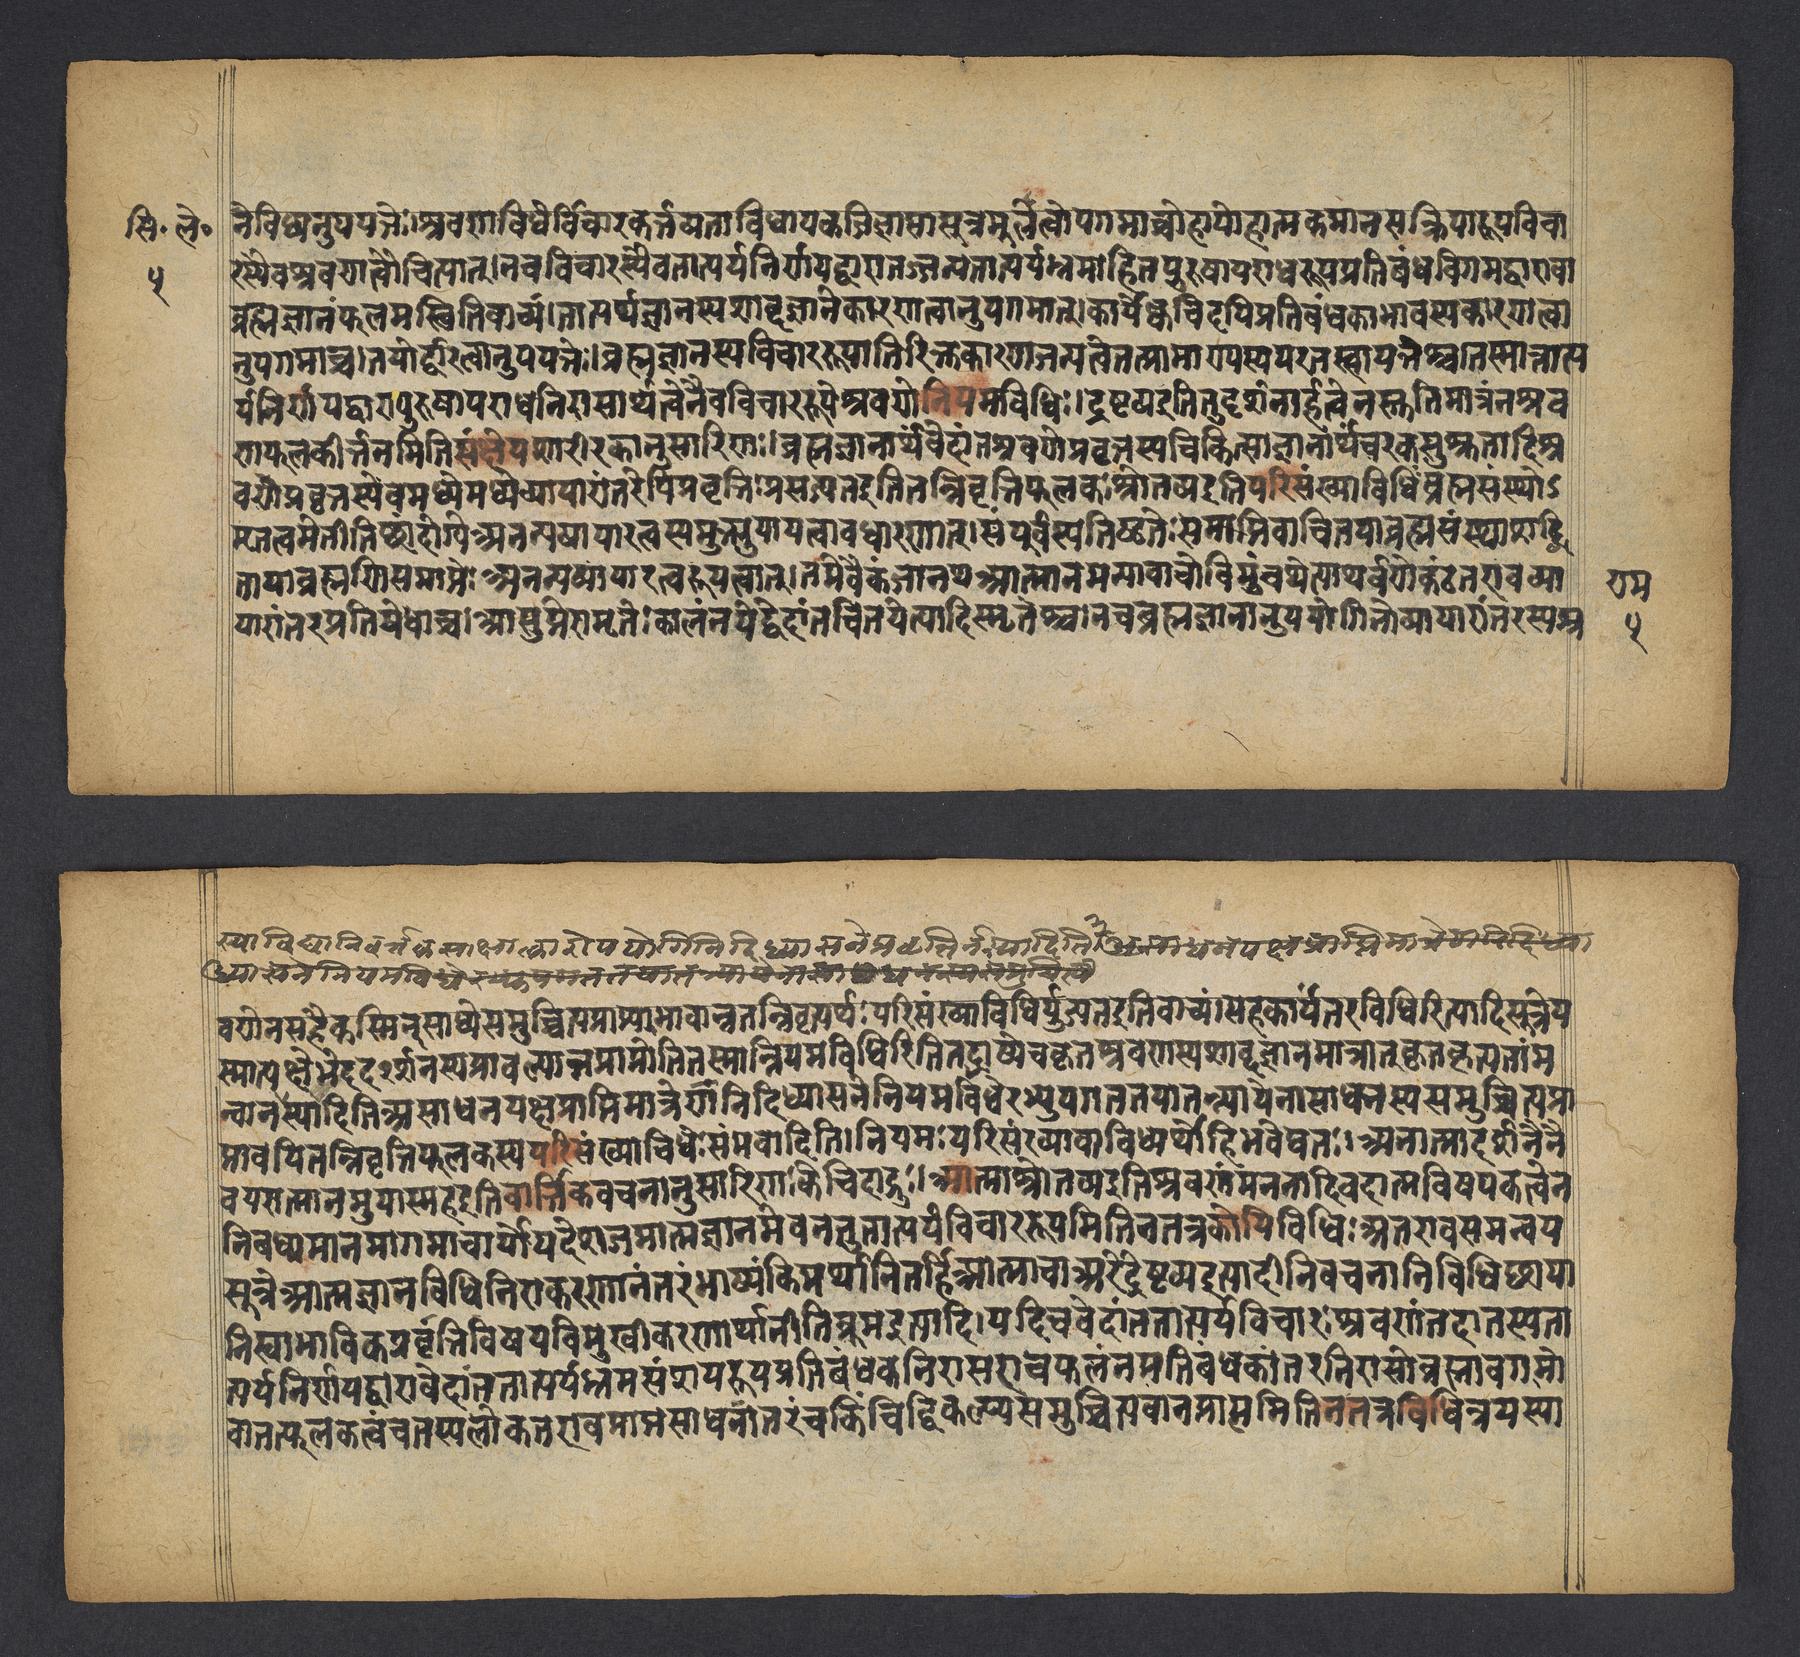 सि॰ ले॰
५
ने विध्यनुपपत्तेः।श्रवणविधेर्विचारकर्त्तव्यताविधायकजिज्ञासासूत्रमूलत्वोपगमाच्चोहापोहात्मकमानसक्रियारूपविचा
रस्यैवश्रवणत्वौचित्यात्।नचविचारस्यैवतात्पर्यनिर्णयद्वारातज्जन्यतात्पर्यभ्रमादितपुरुषापराधरूपप्रतिबंधविगमद्वारावा
ब्रह्मज्ञानंफलमस्त्वितिवाच्यं।तात्पर्यज्ञानस्यशाब्दज्ञानेकारणत्वानुपगमात्।कार्येक्वचिदपिप्रतिबंधकाभावस्यकारणत्वा
नुपगमाच्च।तयोर्द्वारत्वानुपपत्तेः।ब्रह्मज्ञानस्यविचाररूपातिरिक्तकारणजन्यत्वेतत्प्रामाण्यस्यपरतस्त्वापत्तेश्चतस्मात्तात्प
र्यनिर्णयद्वारापुरुषापराधनिरासार्थत्वेनैवविचाररूपेश्रवणेनियमविधिः।द्रष्टव्यइतितुदर्शनार्हत्वेनस्तुतिमात्रंनश्रव
णफलकीर्त्तनमितिसंक्षेपशारीरकानुसारिणः।ब्रह्मज्ञानार्थंवेदांतश्रवणेप्रवृत्तस्यचिकित्साज्ञानार्थंचरकसुश्रुतादिश्र
वणेप्रवृत्तस्येवमध्येमध्येव्यापारांतरेपिप्रवृत्तिःप्रसज्यतइतितन्निवृत्तिफलकःश्रोतव्यइतिपरिसंख्याविधिःब्रह्मसंस्थोऽ
मृतत्वमेतीतिछांदोग्येअनन्यव्यापारत्वस्यमुक्त्युपायत्वावधारणात्।संपूर्वस्यतिष्ठतेःसमाप्तिवाचितयाब्रह्मसंस्थाशब्दि
तायाब्रह्मणिसमाप्तेःअनन्यव्यापारत्वरूपत्वात्।तमेवैकंजानथआत्मानमन्यावाचोविमुंचथेत्याथर्वणेकंठतएवव्या
पारांतरप्रतिषेधाच्च।आसुप्तेरामृतेःकालंनयेद्वेदांतचिंतयेत्यादिस्मृतेश्च।नचब्रह्मज्ञानानुपयोगिनोव्यापारांतरस्यश्र
राम
५
स्याविद्यानिवर्त्तकसाक्षात्कारोपयोगिनिदिध्यासनेप्रवृत्तिर्नस्यादिति
वणेनसहैकस्मिन्साध्येसमुच्चित्यप्राप्त्यभावान्नतन्निवृत्यर्थःपरिसंख्याविधिर्युज्यतइतिवाच्यं।सहकार्यंतरविधिरित्यादिसूत्रेय
स्मात्पक्षेभेददर्शनस्यप्राबल्यान्नप्राप्नोतितस्मान्नियमविधिरितितद्भाष्येचकृतश्रवणस्यशाब्दज्ञानमात्रात्कृतकृत्यतांम
न्वानस्यादितिअसाधनपक्षप्राप्तिमात्रेणनिदिध्यासनेनियमविधेरभ्युपगततयातन्न्यायेनासाधनस्यसमुच्चित्यप्रा
प्तावपितन्निवृत्तिफलकस्यपरिसंख्याविधेःसंभवादिति।नियमःपरिसंख्यावाविध्यर्थोहिभवेद्यतः।अनात्मादर्शनेनै
वपरात्मानमुपास्महेइतिवार्त्तिकवचनानुसारिणःकेचिदाहुः।आत्माश्रोतव्यइतिश्रवणंमननादिवदात्मविषयकत्वेन
निबध्यमानमागमाचार्योपदेशजमात्मज्ञानमेवनतुतात्पर्यविचाररूपमितिनतत्रकोपिविधिःअतएवसमन्वय
सूत्रेआत्मज्ञानविधिनिराकरणानंतरंभाष्यंकिमर्थानितर्हिआत्मावाअरेद्रष्टव्यइत्यादीनिवचनानिविधिछाया
निस्वाभाविकप्रवृत्तिविषयविमुखीकरणार्थानीतिब्रूमइत्यादि।यदिचवेदांततात्पर्यविचारःश्रवणंतदातस्यता
त्पर्यनिर्णयद्वारावेदांततात्पर्यभ्रमसंशयरूपप्रतिबंधकनिरासएवफलंनप्रतिबंधकांतरनिरासोब्रह्मावगमो
वातत्फलकत्वंचतस्यलोकतएवप्राप्तंसाधनांतरंचकिंचिद्विकल्प्यसमुच्चित्यवानप्राप्तमितिनतत्रविधित्रयस्या